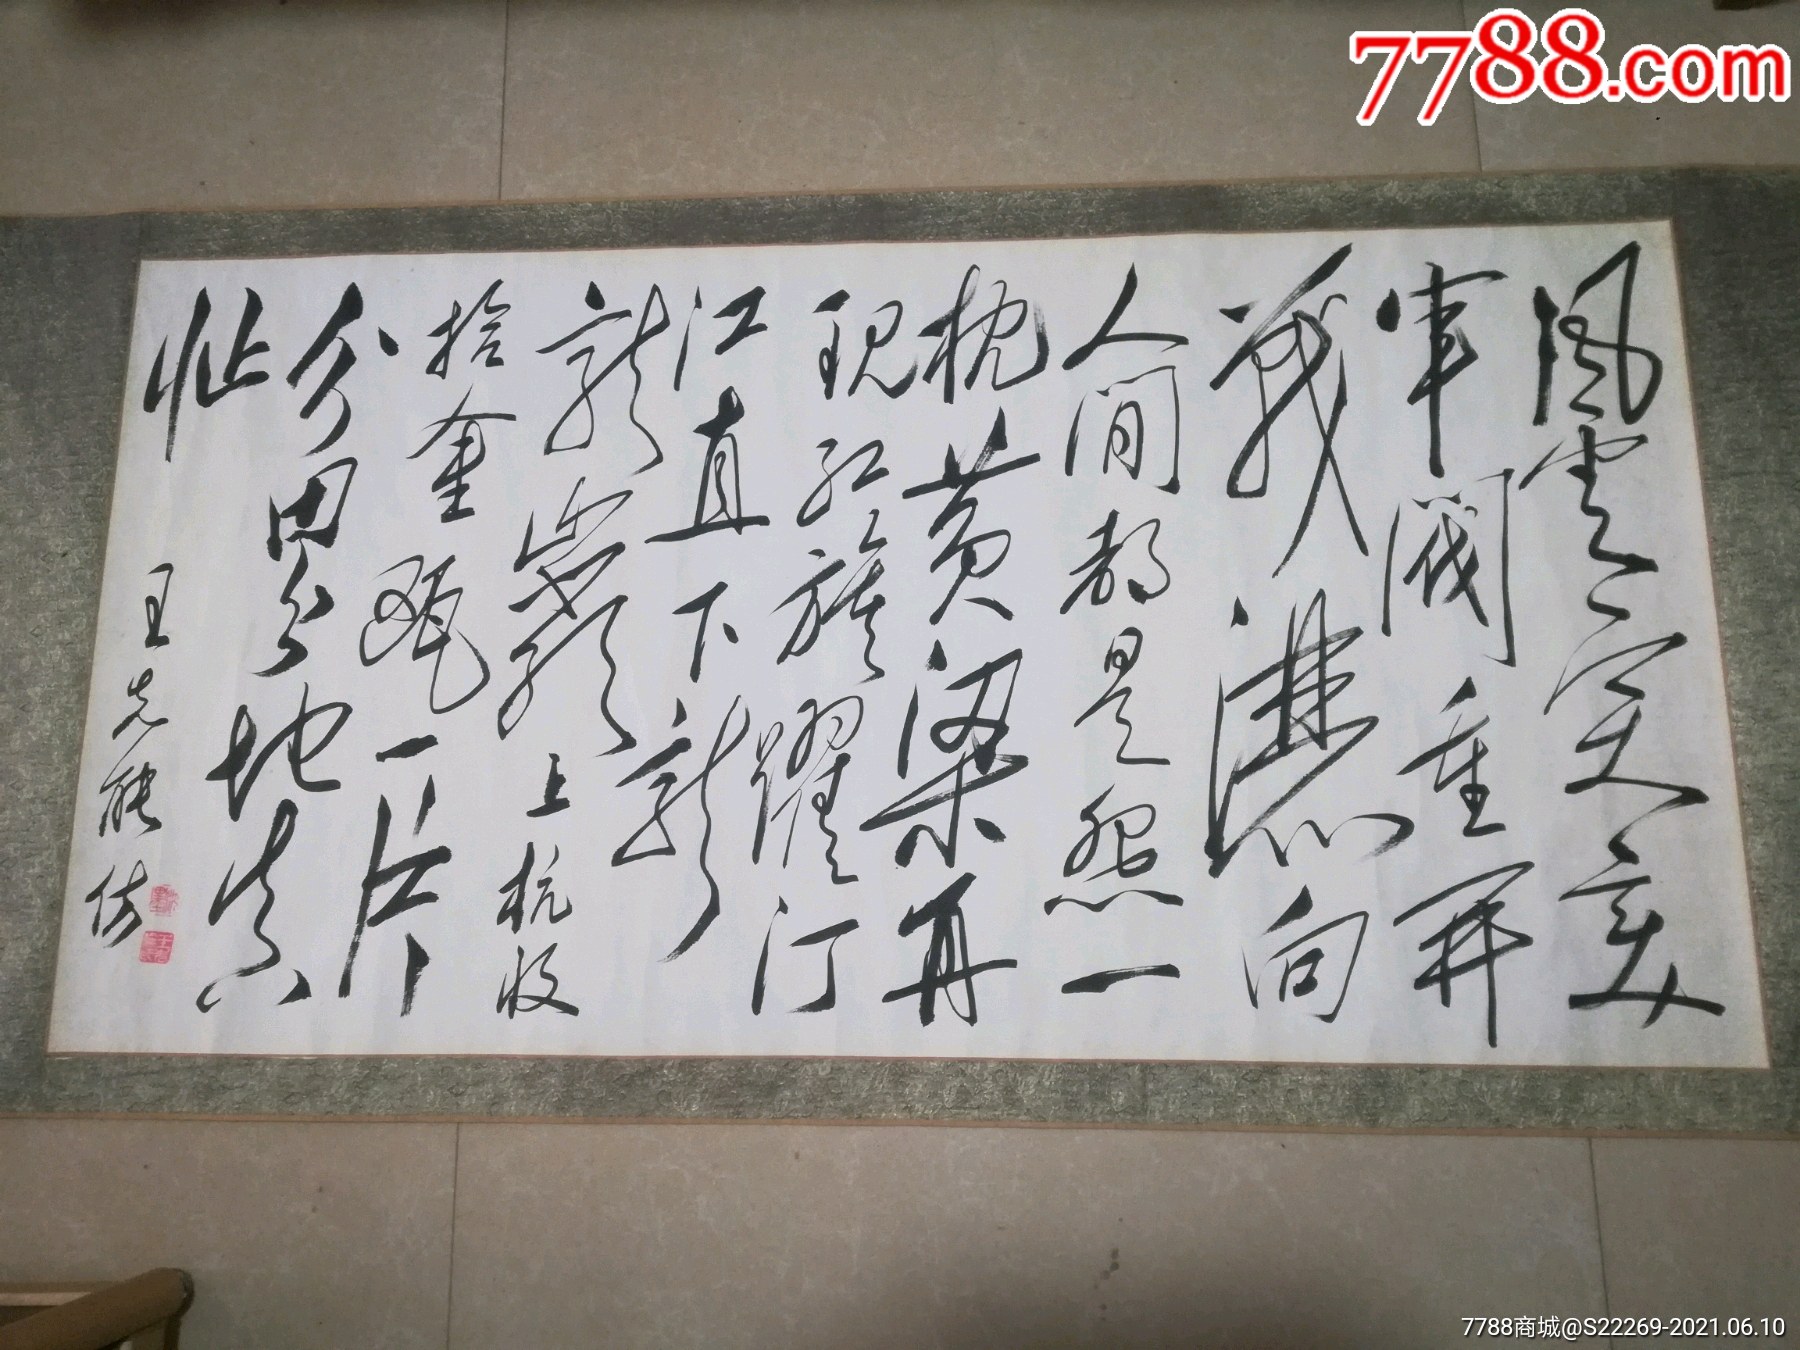 風雲突变
軍閥重開
戰灑向
人間都是怨一
枕黄粱再
現红旗躍汀
江直下龍
龍巖上杭收
拾金甌一片
分田分地真
忙
王先能仿
7788.com
7788商城@S22269-2021.06.10